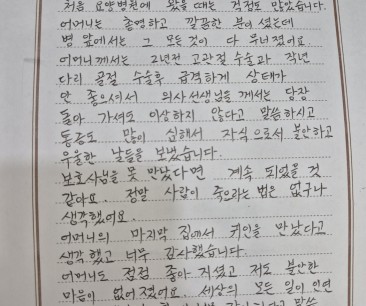 처음 요양병원에 왔을때는 걱정도 많았습니다.
어머니는 총명하고 깔끔한 분이셨는데
병 앞에서는 그 모든것이 다 무너졌어요.
어머니께서는 2년전 고관절 수술과 작년
다리 골절 수술후 급격하게 상태가
안 좋으셔서 의사선생님들께서는 당장
돌아 가셔도 이상하지 않다고 말씀하시고
통증도 많이 심해서 자식으로서 불안하고
우울한 날들을 보냈습니다.
보호사님을 못 만났다면 계속 되었을 것
같아요. 정말 사람이 죽으라는 법은 없구나
생각했어요.
어머니의 마지막 집에서 귀인을 만났다고
생각했고 너무 감사했습니다.
어머니도 점점 좋아 지셨고 저도 불안한
마음이 없어졌어요. 세상의 모든 일이 인연